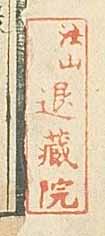 法山退藏院